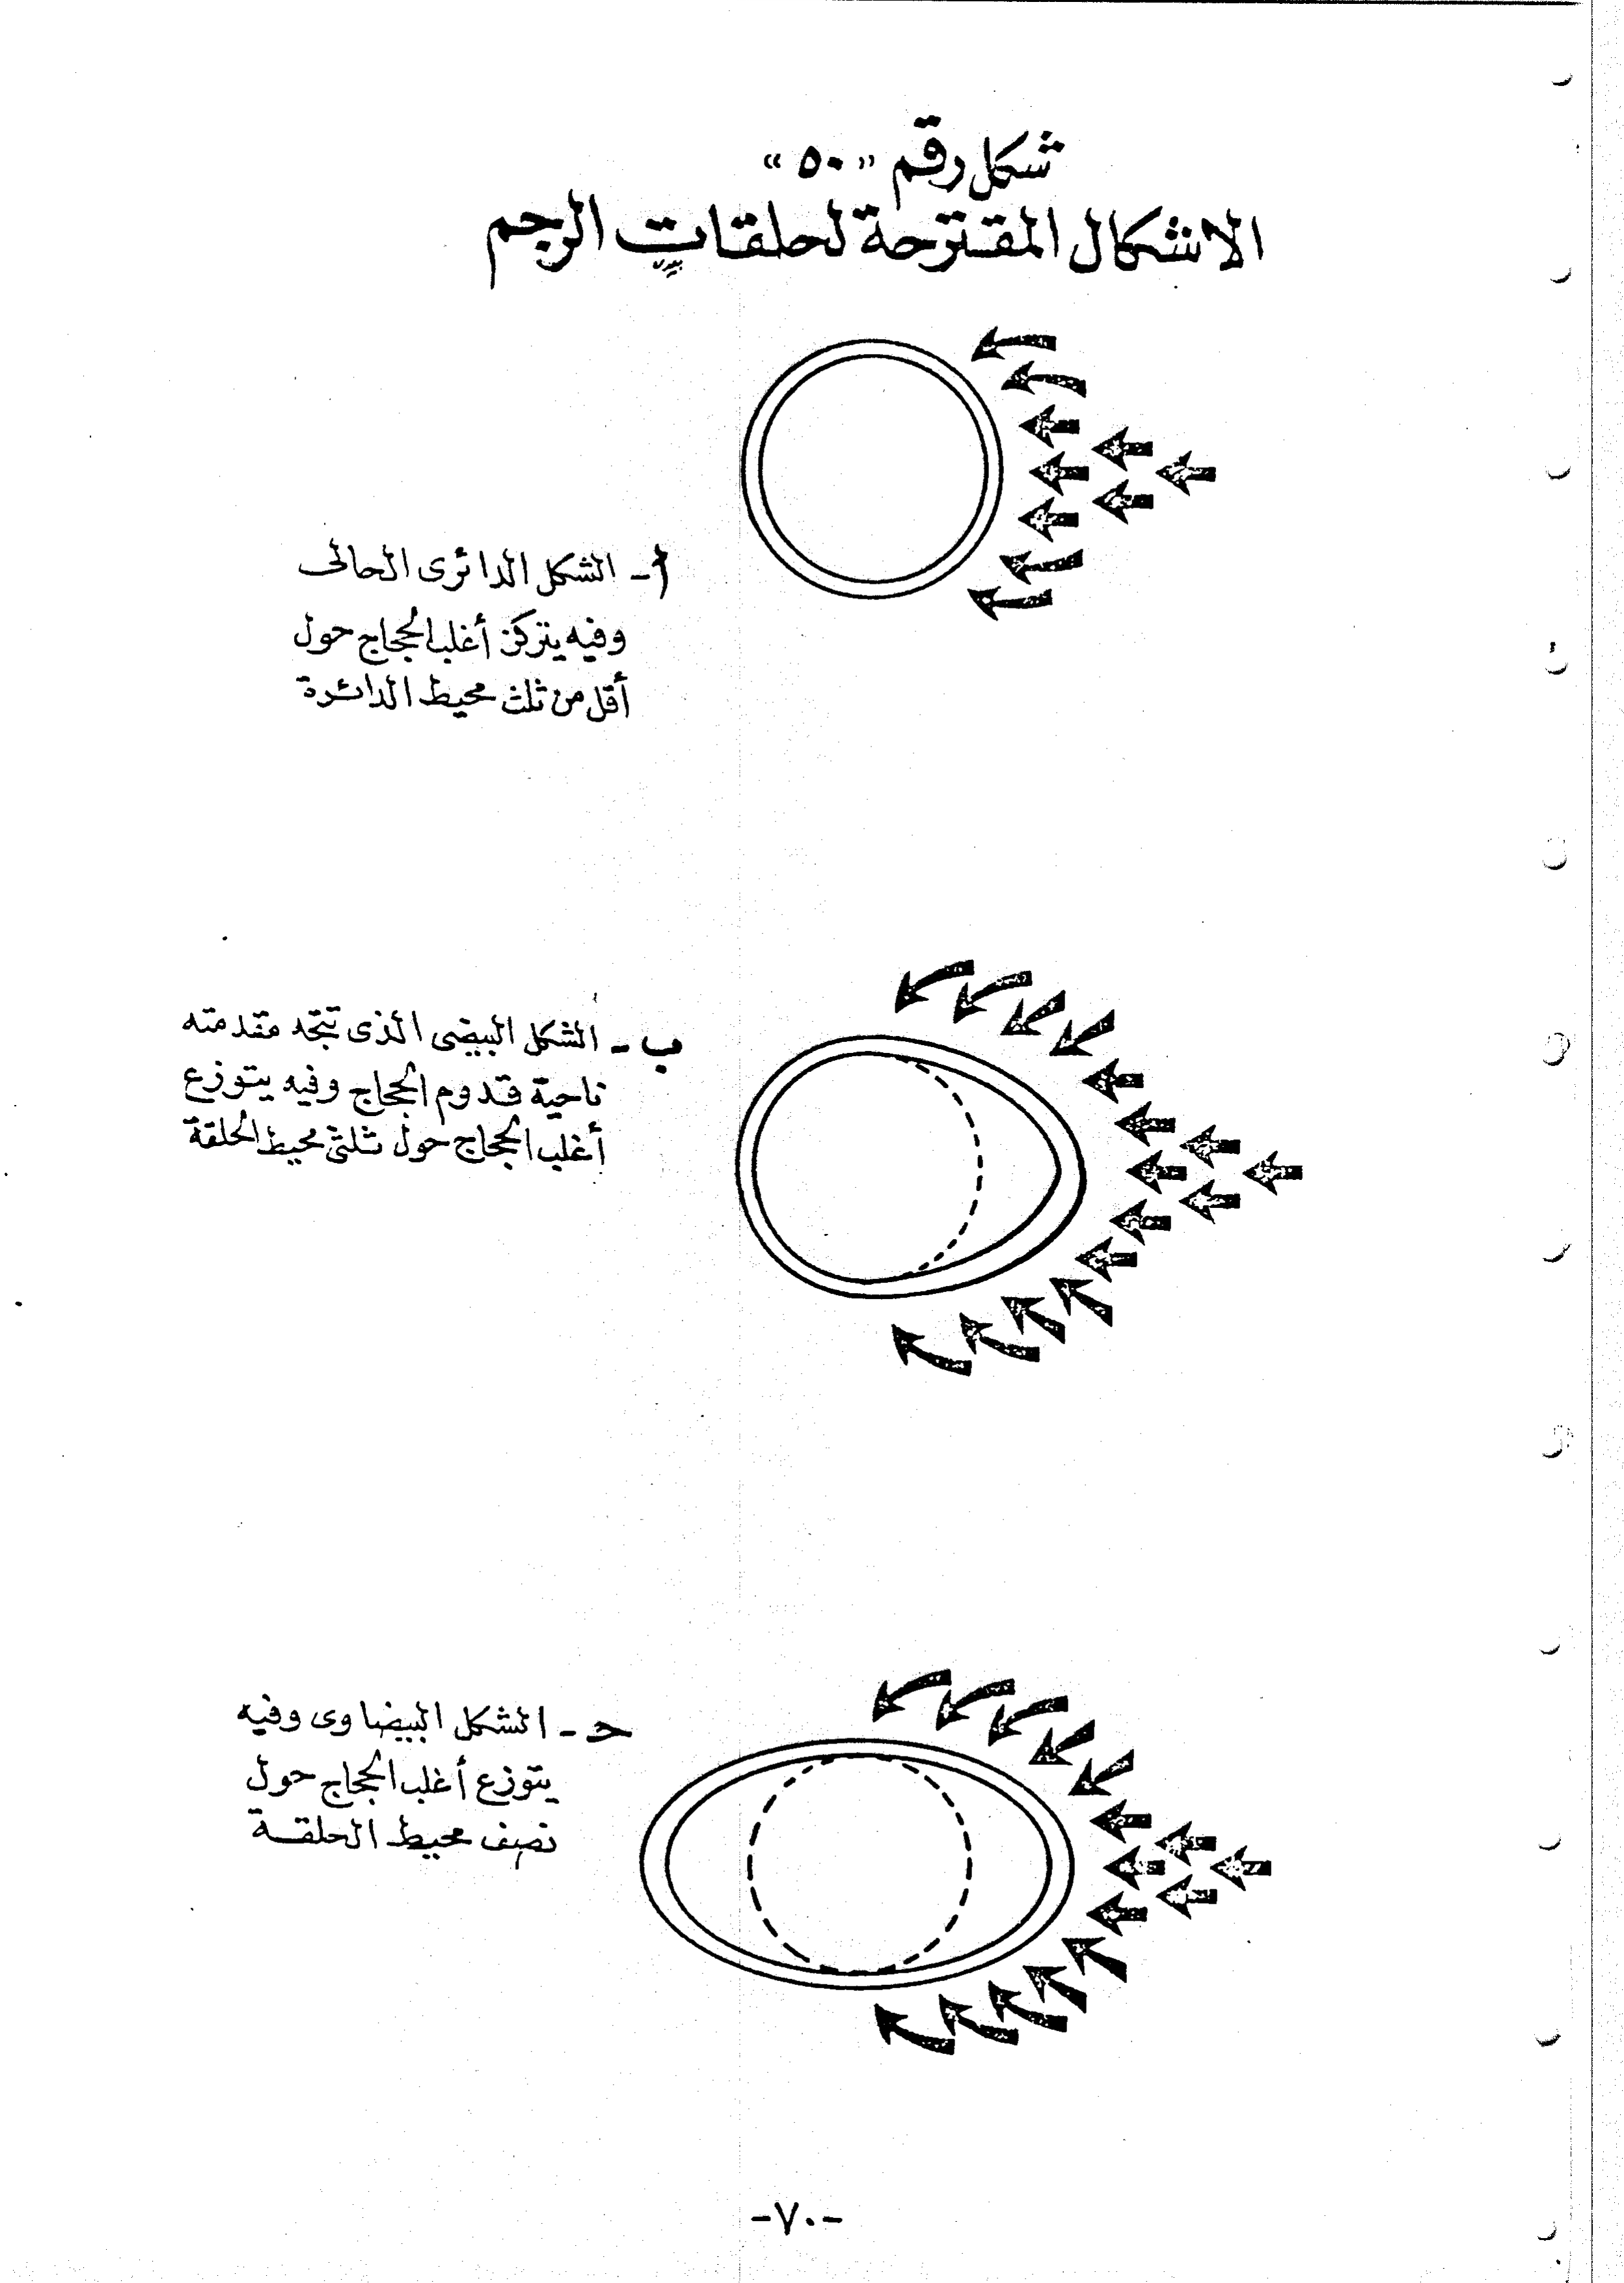 شكل رقم «٥٠»
الاشكال المقترحة لحلقات الرجم
أ- الشكل الدائرى الحالى
وفيه يتركز أغلب الحجاج حول
أقل من ثلث محيط الدائرة
ب - الشكل البيضى الذى تتجه مقدمته
ناحية قدوم الحجاج وفيه يتوزع
أغلب الحجاج حول ثلثى محيط الحلقة
حـ - الشكل البيضاوى وفيه
يتوزع أغلب الحجاج حول
نصف محيط الحلقة
-٧٠-